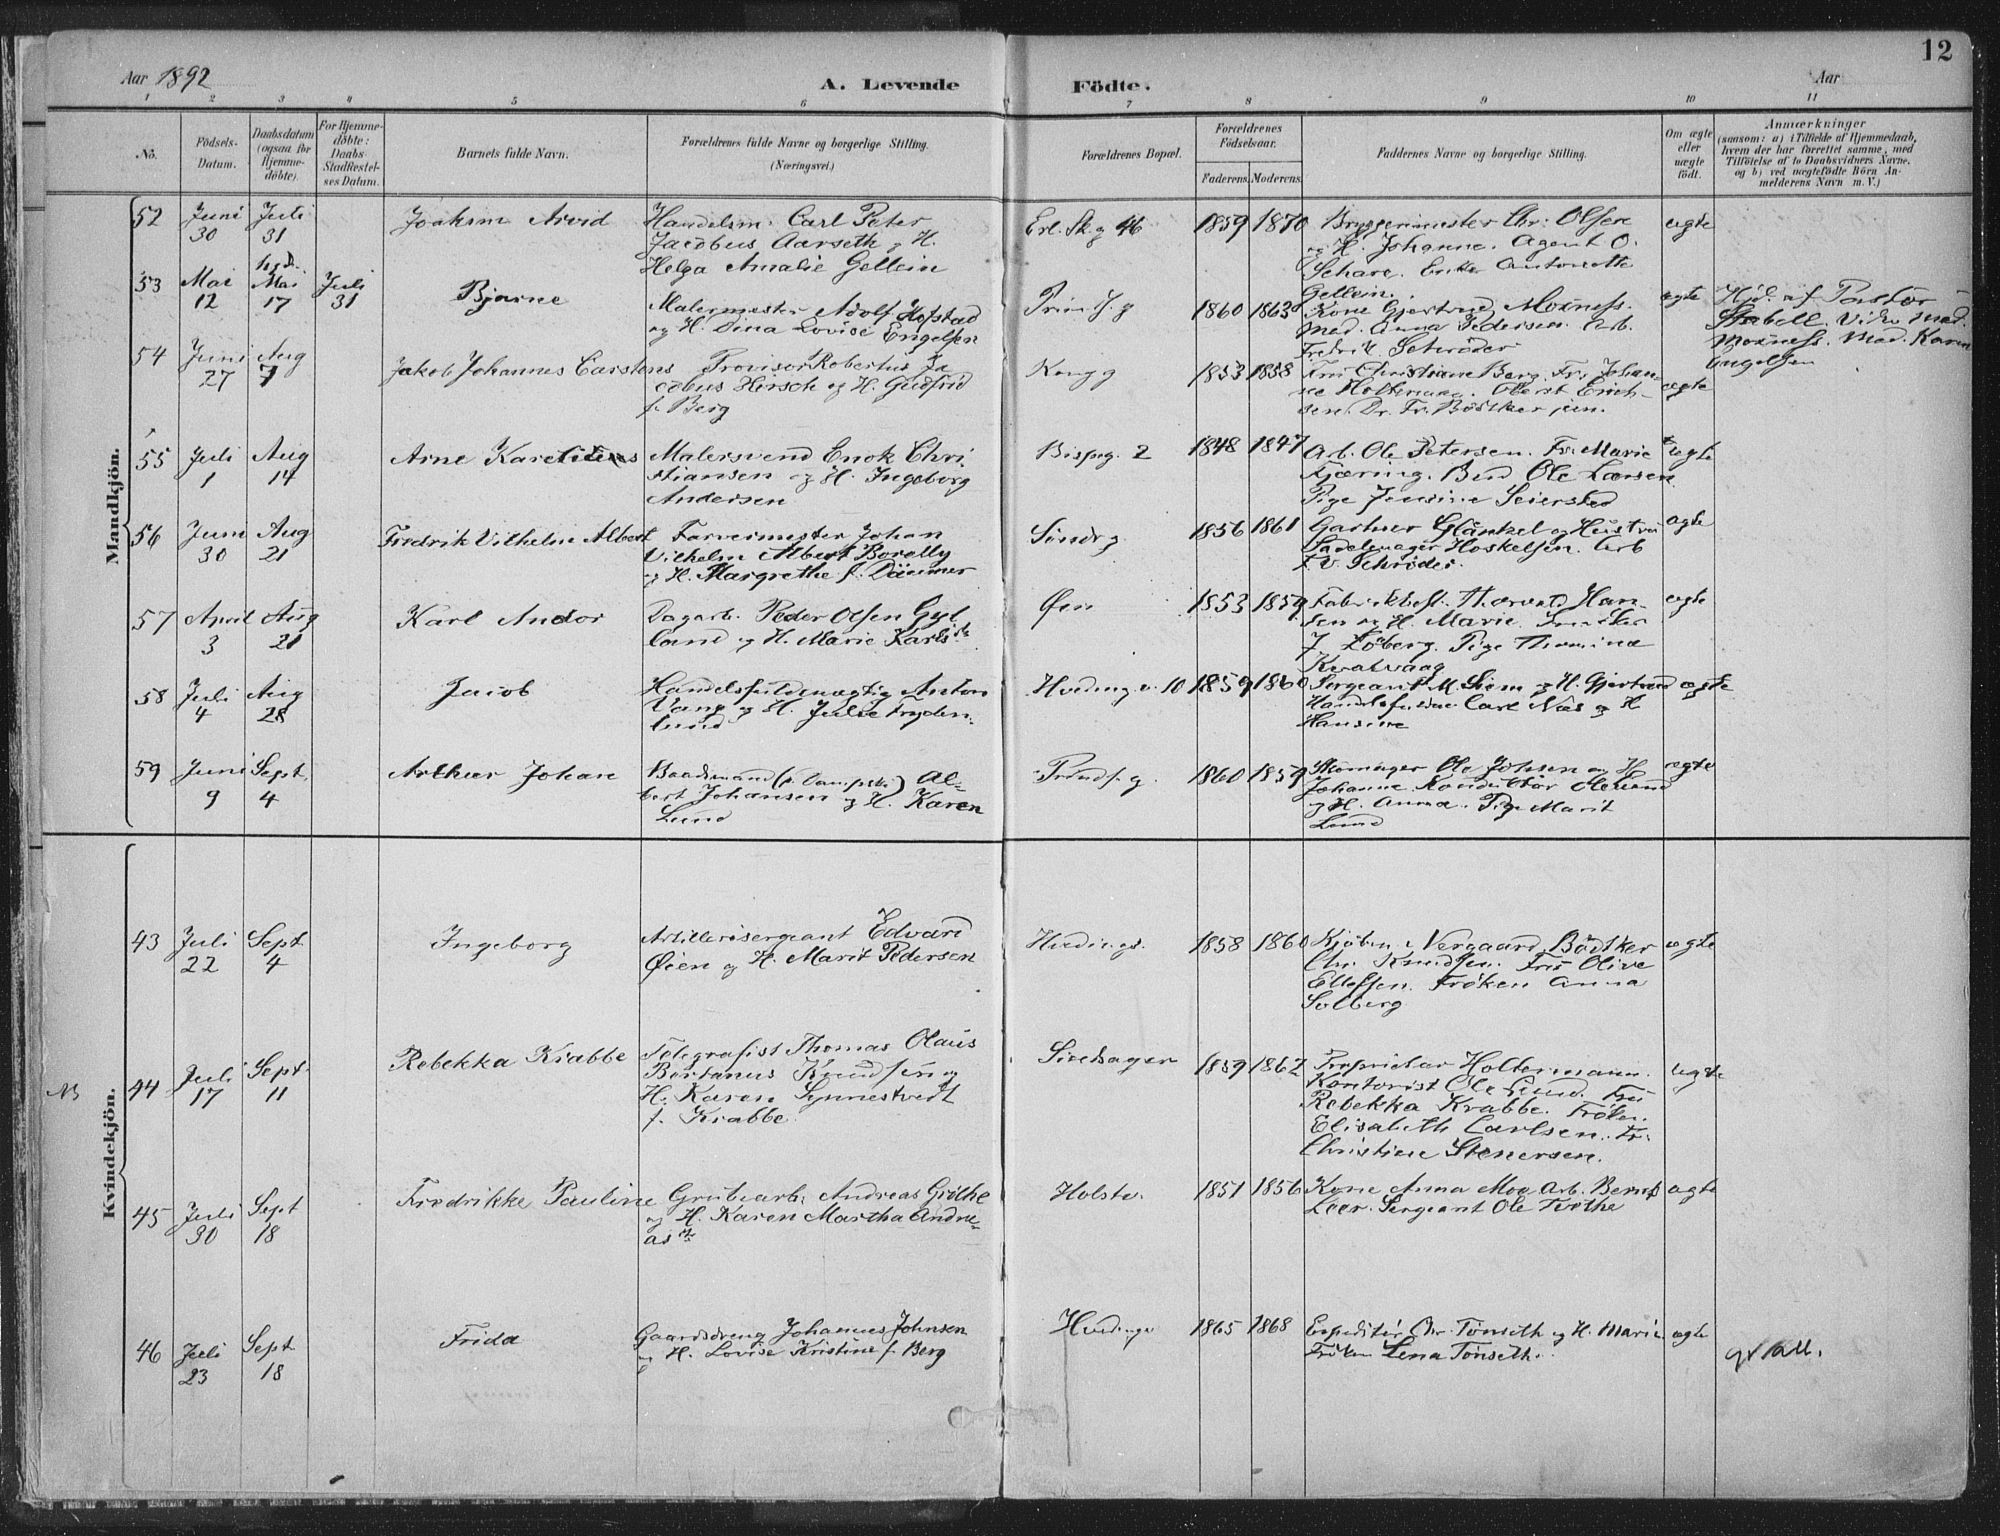 12
Aar 1892
A. Levende
Födte.
Aar
1 2 3 4 5 6 7 8 9 10 11
No.
Födsels-
Datum.
Daabsdatum
(ogsaa for
Hjemme-
döbte).
For Hjemme-
döbte:
Daabs-
Stadfæstel-
ses Datum.
Barnets fulde Navn.
Forældrenes fulde Navne og borgerlige Stilling.
(Næringsvei.)
Forældrenes Bopæl.
Forældrenes
Födselsaar.
Faderens. Moderens.
Faddernes Navne og borgerlige Stilling.
Om ægte
eller
uægte
födt.
Anmærkninger
(saasom: a) i Tilfælde af Hjemmedaab,
hvem der har forrettet samme, med
Tilföielse af to Daabsvidners Navne,
og b) ved uægtefödte Börn An-
melderens Navn m. V.)
Mandkjön.
52
Juni
30
Juli
31
Joakim Arvid
Handelsm. Carl Peter
Jacobus Aarseth og H.
Helga Amalie Gellein
Erl. Sk g 46
1859 1870
Bryggerimester Chr. Olsen
og H. Johanne. Agent O.
Schare. Enke Antonette
Gellein.
ægte
53
Mai
12
hjd.
Mai
17
Juli
31
Bjarne
Malermester Adolf Hofstad
og H. Dina Lovise Engelsen
Prins g
1860 1863
Kone Gjertrud Moxness.
Mad. Anna Pedersen. Arb.
Fredrik Schrøder
ægte
Hjd. af Pastor
Stabell. Vidn. Mad.
Moxness. Mad. Karen
Engelsen
54
Juni
27
Aug
7
Jakob Johannes Carstens
Provisor Robertus Ja
cobus Hirsch og H. Gudfrid
f. Berg
Kong g
1853 1858
Fru Christiane Berg. Fr. Johan-
ne Holterman. Oberst Erich-
sen. Dr. Fr. Bödtker jun.
ægte
55
Juli
1
Aug
14
Arne
Malersvend Enok Chri
stiansen og H. Ingeborg
Andersen
Bispeg. 2
1848 1847
Arb. Ole Petersen. Fr. Marie
Fjæring. Bud Ole Larsen
Pige Jensine Seiersted
ægte
56
Juni
30
Aug
21
Fredrik Vilhelm Albert
Farvermester Johan
Vilhelm Albert Borelly
og H. Margrethe f. Däumer
Söndr g.
1856 1861
Gartner Glänkel og Hustru
Sadelmager Hoskelsen. Arb
F. V. Schröder.
ægte
57
April
3
Aug
21
Karl Andor
Dagarb. Peder Olsen Gyl
land og H. Marie Karlsd.
Øen
1853 1859
Fabrikbest. Thorvald Han-
sen og H. Marie. Snedker
J. Löberg. Pige Thomine
Kvalvaag
ægte
58
Juli
4
Aug
28
Jacob
Handelsfuldmægtig Anton
Vang og H. Julie Fryden-
lund
Hveding v. 10
1859 1860
Sergeant M. Siem og H. Gjertrud
Handelsfuldm. Carl Næs og H
Hansine
ægte
59
Juni
9
Sept.
4
Arthur Johan
Baadsmand (p. Dampsk.) Al-
bert Johansen og H. Karen
Lund
Prinds. g.
1860 1859
Skomager Ole Johsen og H.
Johanne. Konduktör
og H. Anna. Pige Marit
Lund
ægte
Kvindekjön.
43
Juli
22
Sept
4
Ingeborg
Artillerisergeant Edvard
Øien og H. Marit Pedersen
Hvedings.
1858 1860
Kjøbm. Nergaard. Bödtker
Chr. Knudsen. Fru Olive
Ellefsen. Frøken Anna
Solberg
ægte
NB
44
Juli
17
Sept.
11
Rebekka Krabbe
Telegrafist Thomas Olaus
Bertanus Knudsen og
H. Karen Synnestvedt
f. Krabbe.
1859 1862
Proprietær Holtermann.
Kontorist Ole Lund. Fru
Rebekka Krabbe. Frøken
Elisabeth Carlsen. Fr.
Christine Stenersen.
ægte
45
Juli
30
Sept
18
Fredrikke Pauline
Grubearb. Andreas Grøthe
og H. Karen Martha Andre-
asdr
Holstv.
1851 1856
Kone Anna Moa Arb. Bernt
Leer. Sergeant Ole Trøthe
ægte
46
Juli
23
Sept
18
Frida
Gaardsdreng Johannes Johnsen
og H. Lovise Kristine f. Berg
Hvedings
1865 1868
Expeditör Chr. Tønseth og H. Marie
Frøken Lena Tønseth.
ægte